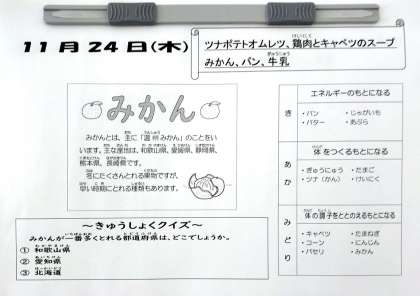 11月24日(木)
ツナポテトオムレツ、鶏肉とキャベツのスープ
みかん、パン、牛乳
みかん
みかんとは、主に「温州みかん」のことをい
います。主な産地は、和歌山県、愛媛県、静岡県、
熊本県、長崎県です。
冬にたくさんとれる果物ですが、
早い時期にとれる種類もあります。
～きゅうしょくクイズ～
みかんが一番多くとれる都道府県は、どこでしょうか。
① 和歌山県
② 愛知県
③ 北海道
き
エネルギーのもとになる
・パン ・じゃがいも
・バター ・あぶら
あか
体をつくるもとになる
・ぎゅうにゅう ・たまご
・ツナ(かん) ・けいにく
みどり
体の調子をととのえるもとになる
・キャベツ ・たまねぎ
・コーン ・にんじん
・パセリ ・みかん